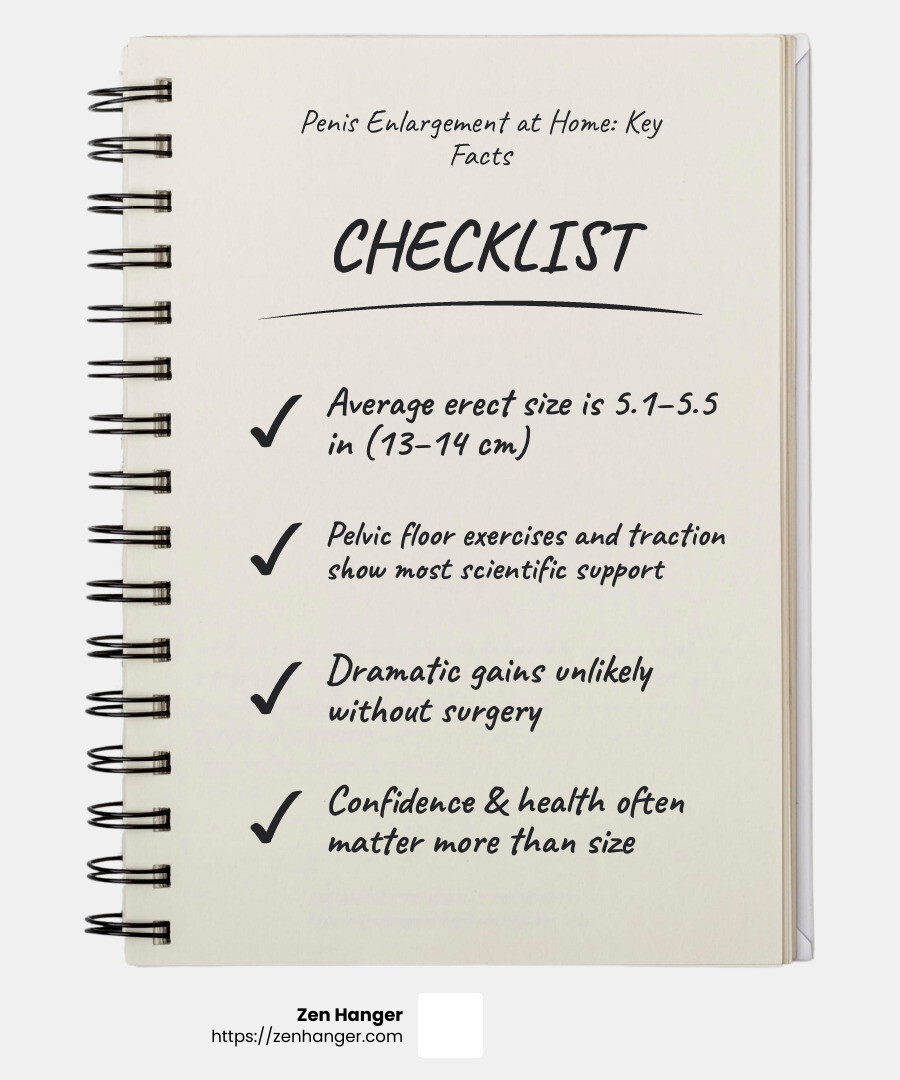 Penis Enlargement at Home: Key
Facts
CHECKLIST
Average erect size is 5.1–5.5
in (13–14 cm)
Pelvic floor exercises and traction
show most scientific support
Dramatic gains unlikely
without surgery
Confidence & health often
matter more than size
Zen Hanger
https://zenhanger.com